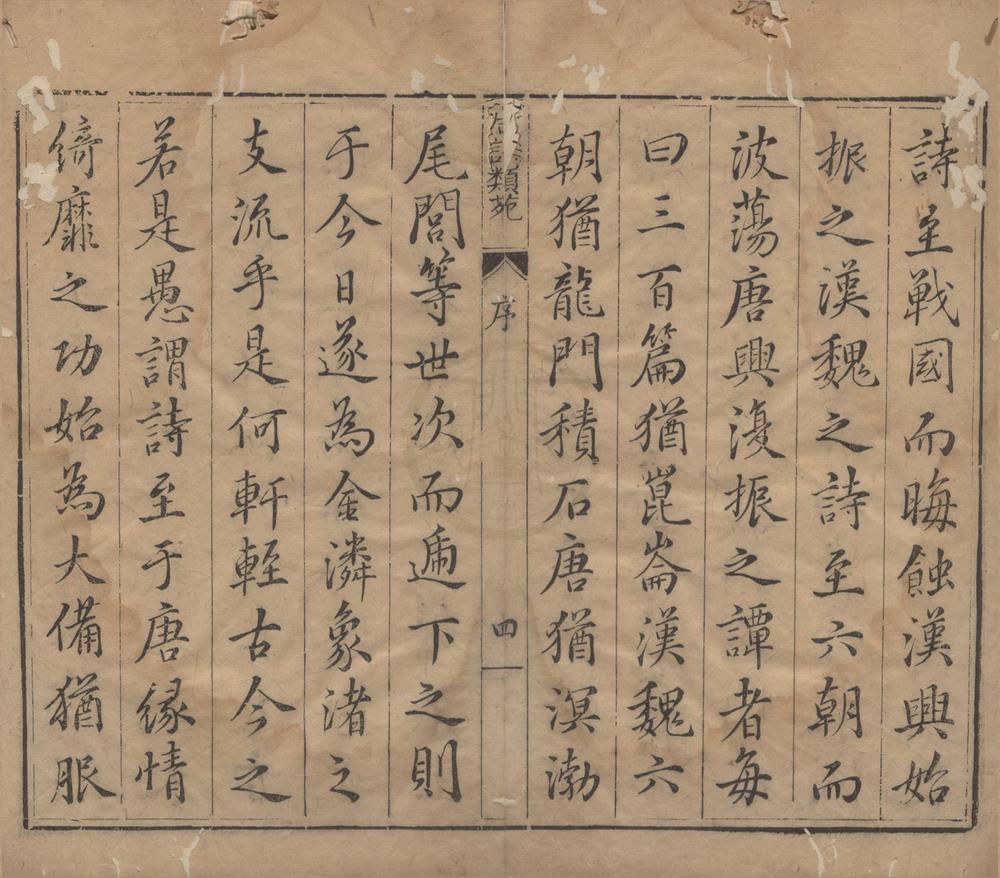 詩至戰國而晦蝕漢興始
振之漢魏之詩至六朝而
波蕩唐興復振之譚者每
曰三百篇猶崑崙漢魏六
朝猶龍門積石唐猶溟渤
詩類苑
序
四
尾閭等世次而逓下之則
于今日遂為金潾象渚之
支流乎是何軒輊古今之
若是愚謂詩至于唐緣情
綺靡之功始為大備猶服